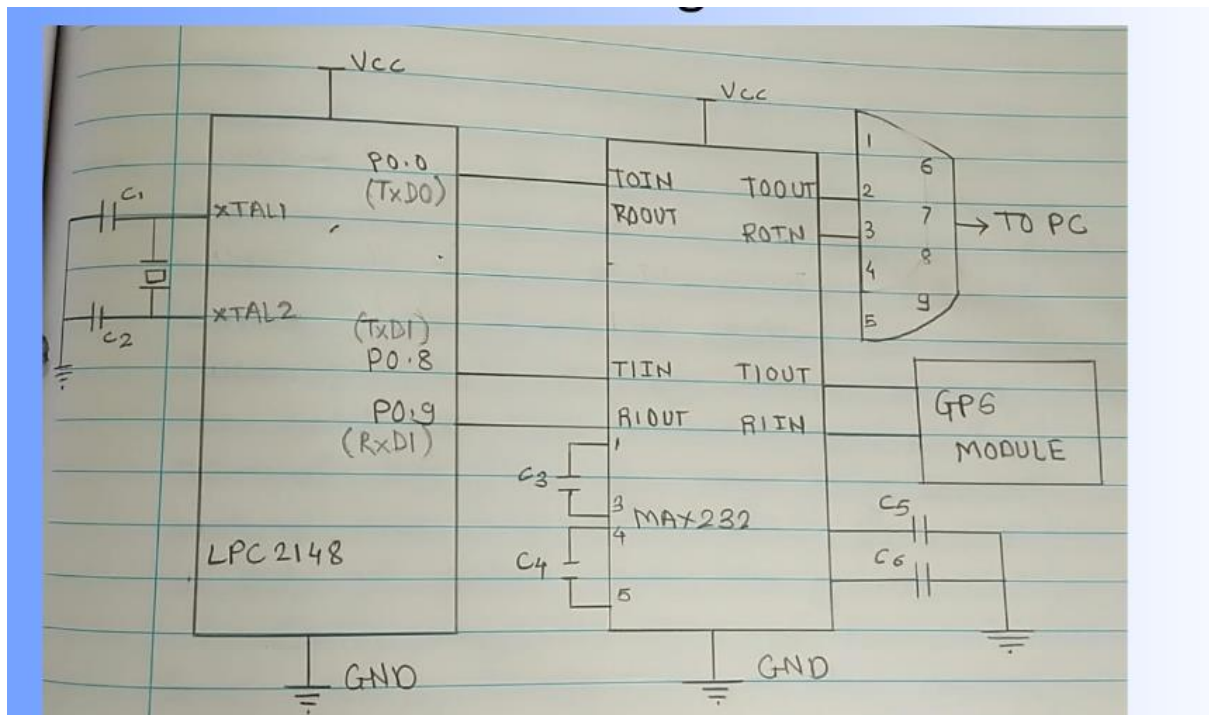 Vcc
Vcc
P0.0
(TxD0)
XTAL1
C1
XTAL2
C2
(TxD1)
P0.8
P0.9
(RxD1)
LPC 2148
GND
T0IN
T0OUT
R0OUT
R0IN
T1IN
T1OUT
R1OUT
R1IN
1
C3
3
MAX232
4
C4
5
GND
1
6
2
7
3
8
4
9
5
TO PC
GPS
MODULE
C5
C6